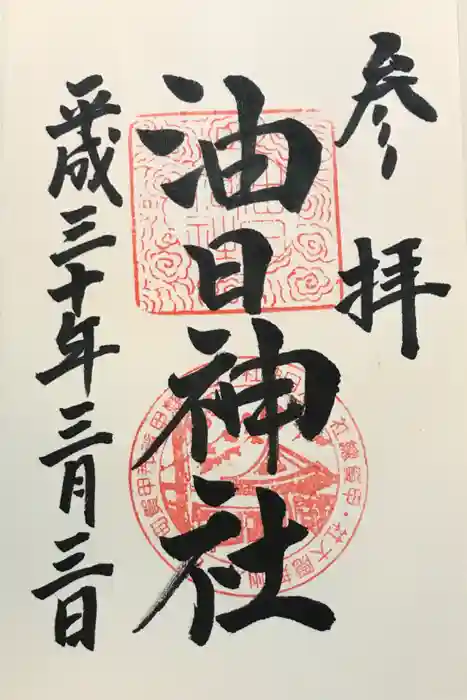 参拝
油日神社
平成三十年三月三日